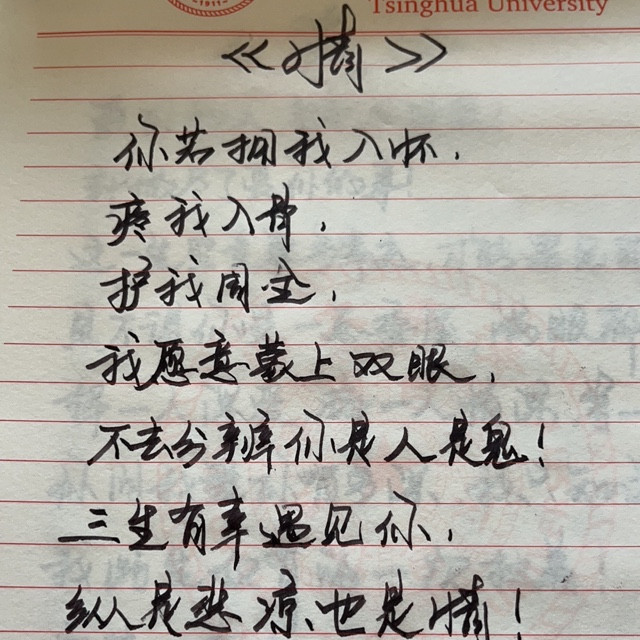 1911
Tsinghua University
<<情>>
你若拥我入怀,
疼我入骨,
护我周全,
我愿意蒙上双眼,
不去分辨你是人是鬼!
三生有幸遇见你,
纵是悲凉、也是情!